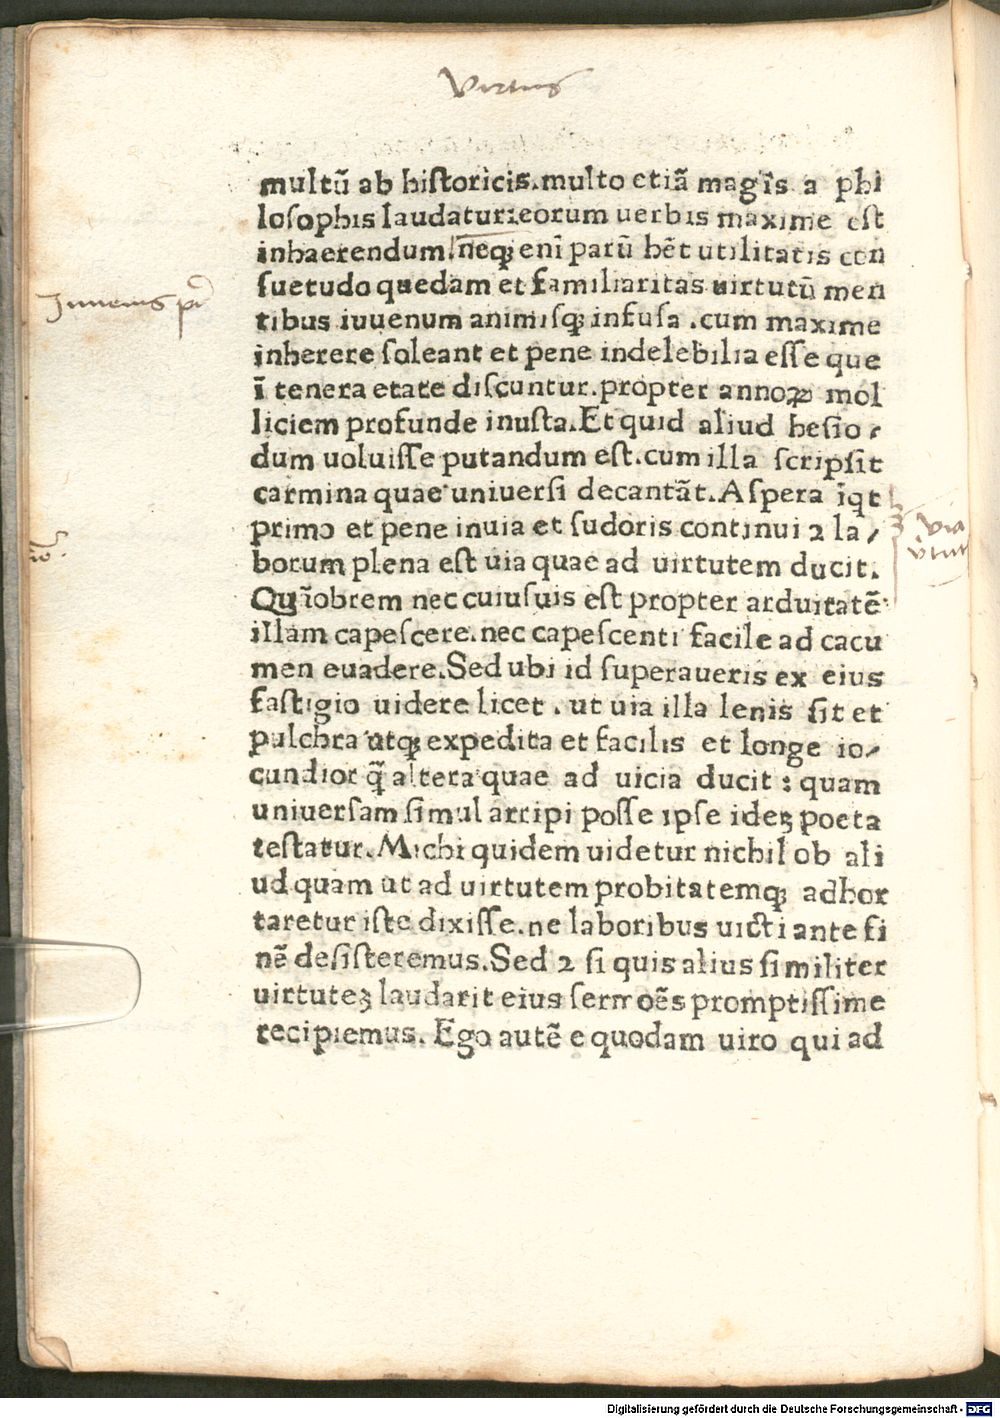 Virtus
multū ab historicis.multo etiā magis a phi
losophis laudatur:eorum uerbis maxime est
inhaerendum.neqꝫ enī parū hēt utilitatis con
suetudo quedam et familiaritas uirtutū men
tibus iuuenum animisqꝫ infusa.cum maxime
inherere soleant et pene indelebilia esse que
ī tenera etate discuntur.propter annoꝝ mol
liciem profunde inusta.Et quid aliud hesio⸗
dum uoluisse putandum est.cum illa scripsit
carmina quae uniuersi decantāt.Aspera īqt
primo et pene inuia et sudoris continui ⁊ la⸗
borum plena est uia quae ad uirtutem ducit.
Quīobrem nec cuiusuis est propter arduitatē
illam capescere.nec capescenti facile ad cacu
men euadere.Sed ubi id superaueris ex eius
fastigio uidere licet.ut uia illa lenis sit et
pulchra atqꝫ expedita et facilis et longe io⸗
cundior q̄ altera quae ad uicia ducit: quam
uniuersam simul arripi posse ipse ideꝫ poeta
testatur.Michi quidem uidetur nichil ob ali
ud quam ut ad uirtutem probitatemqꝫ adhor
taretur iste dixisse.ne laboribus uicti ante fi
nē desisteremus.Sed ⁊ si quis alius similiter
uirtuteꝫ laudarit eius sermoēs promptissime
recipiemus. Ego autē e quodam uiro qui ad
Via
Digitalisierung gefördert durch die Deutsche Forschungsgemeinschaft - DFG